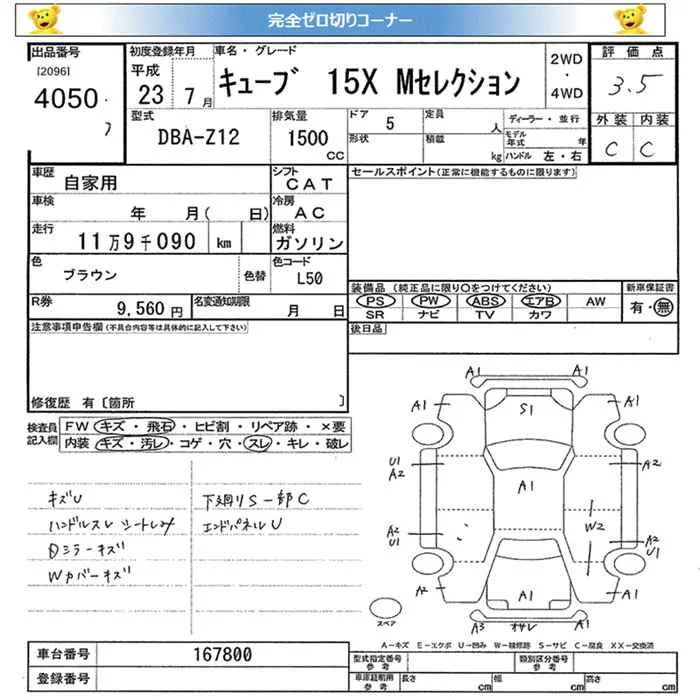 完全ゼロ切りコーナー
出品番号
[2096]
4050
7
初度登録年月
平成
23 7月
車名・グレード
キューブ 15X Mセレクション
2WD
・
4WD
評価点
3.5
外装 内装
C C
型式
DBA-Z12
排気量
1500
CC
ドア
5
定員
人
形状
積載
kg
ディーラー・並行
モデル年式 年
ハンドル 左・右
車歴
自家用
シフト
CAT
車検
年 月( 日)
冷房
AC
走行
11万9千090 km
燃料
ガソリン
色
ブラウン
色替
色コード
L50
R券
9,560円
名変通知期限
月 日
セールスポイント(正常に機能するものに限ります)
装備品 (純正品に限り○をつけてください)
PS PW ABS エアB AW
SR ナビ TV カワ
新車保証書
有・無
後日品
注意事項申告欄(不具合内容等は具体的に記入して下さい)
修復歴 有〔箇所 〕
検査員記入欄
FW キズ・飛石・ヒビ割・リペア跡・×要
内装 キズ・汚レ・コゲ・穴・スレ・キレ・破レ
キズU
ハンドルスレ シートしみ
Dミラーキズ
Wカバーキズ
下廻りS一部C
エンドパネルU
A1 A1
A1 S1 A1
U1
A2 A1 A2
W2
A2
U1
A2
U1
A2 A1 A1
A3 オサレ A1
スペア
A-キズ E-エクボ U-凹み W-補修跡 S-サビ C-腐食 XX-交換済
車台番号
167800
登録番号
型式指定番号
参考
類別区分番号
参考
車庫証明用
参考
長さ cm
幅 cm
高さ cm